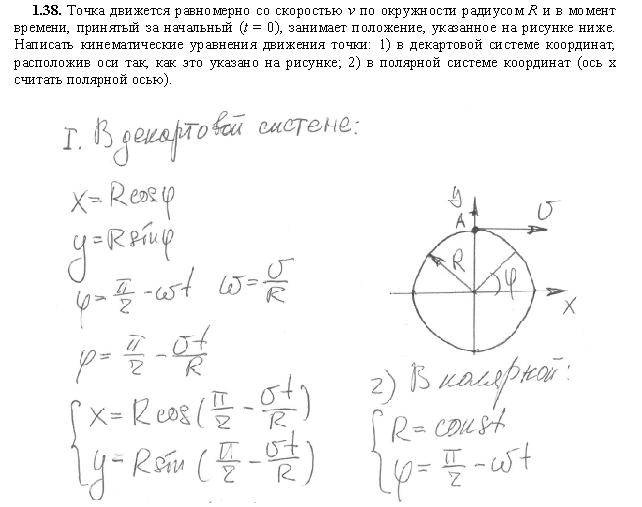 1.38. Точка движется равномерно со скоростью v по окружности радиусом R и в момент
времени, принятый за начальный (t = 0), занимает положение, указанное на рисунке ниже.
Написать кинематические уравнения движения точки: 1) в декартовой системе координат,
расположив оси так, как это указано на рисунке; 2) в полярной системе координат (ось x
считать полярной осью).
I. В декартовой системе:
x = R cos φ
y = R sin φ
φ = π/2 - ωt ω = υ/R
φ = π/2 - υt/R
{ x = R cos (π/2 - υt/R)
y = R sin (π/2 - υt/R)
y
A
υ
R
φ
x
2) В полярной:
{ R = const
φ = π/2 - ωt